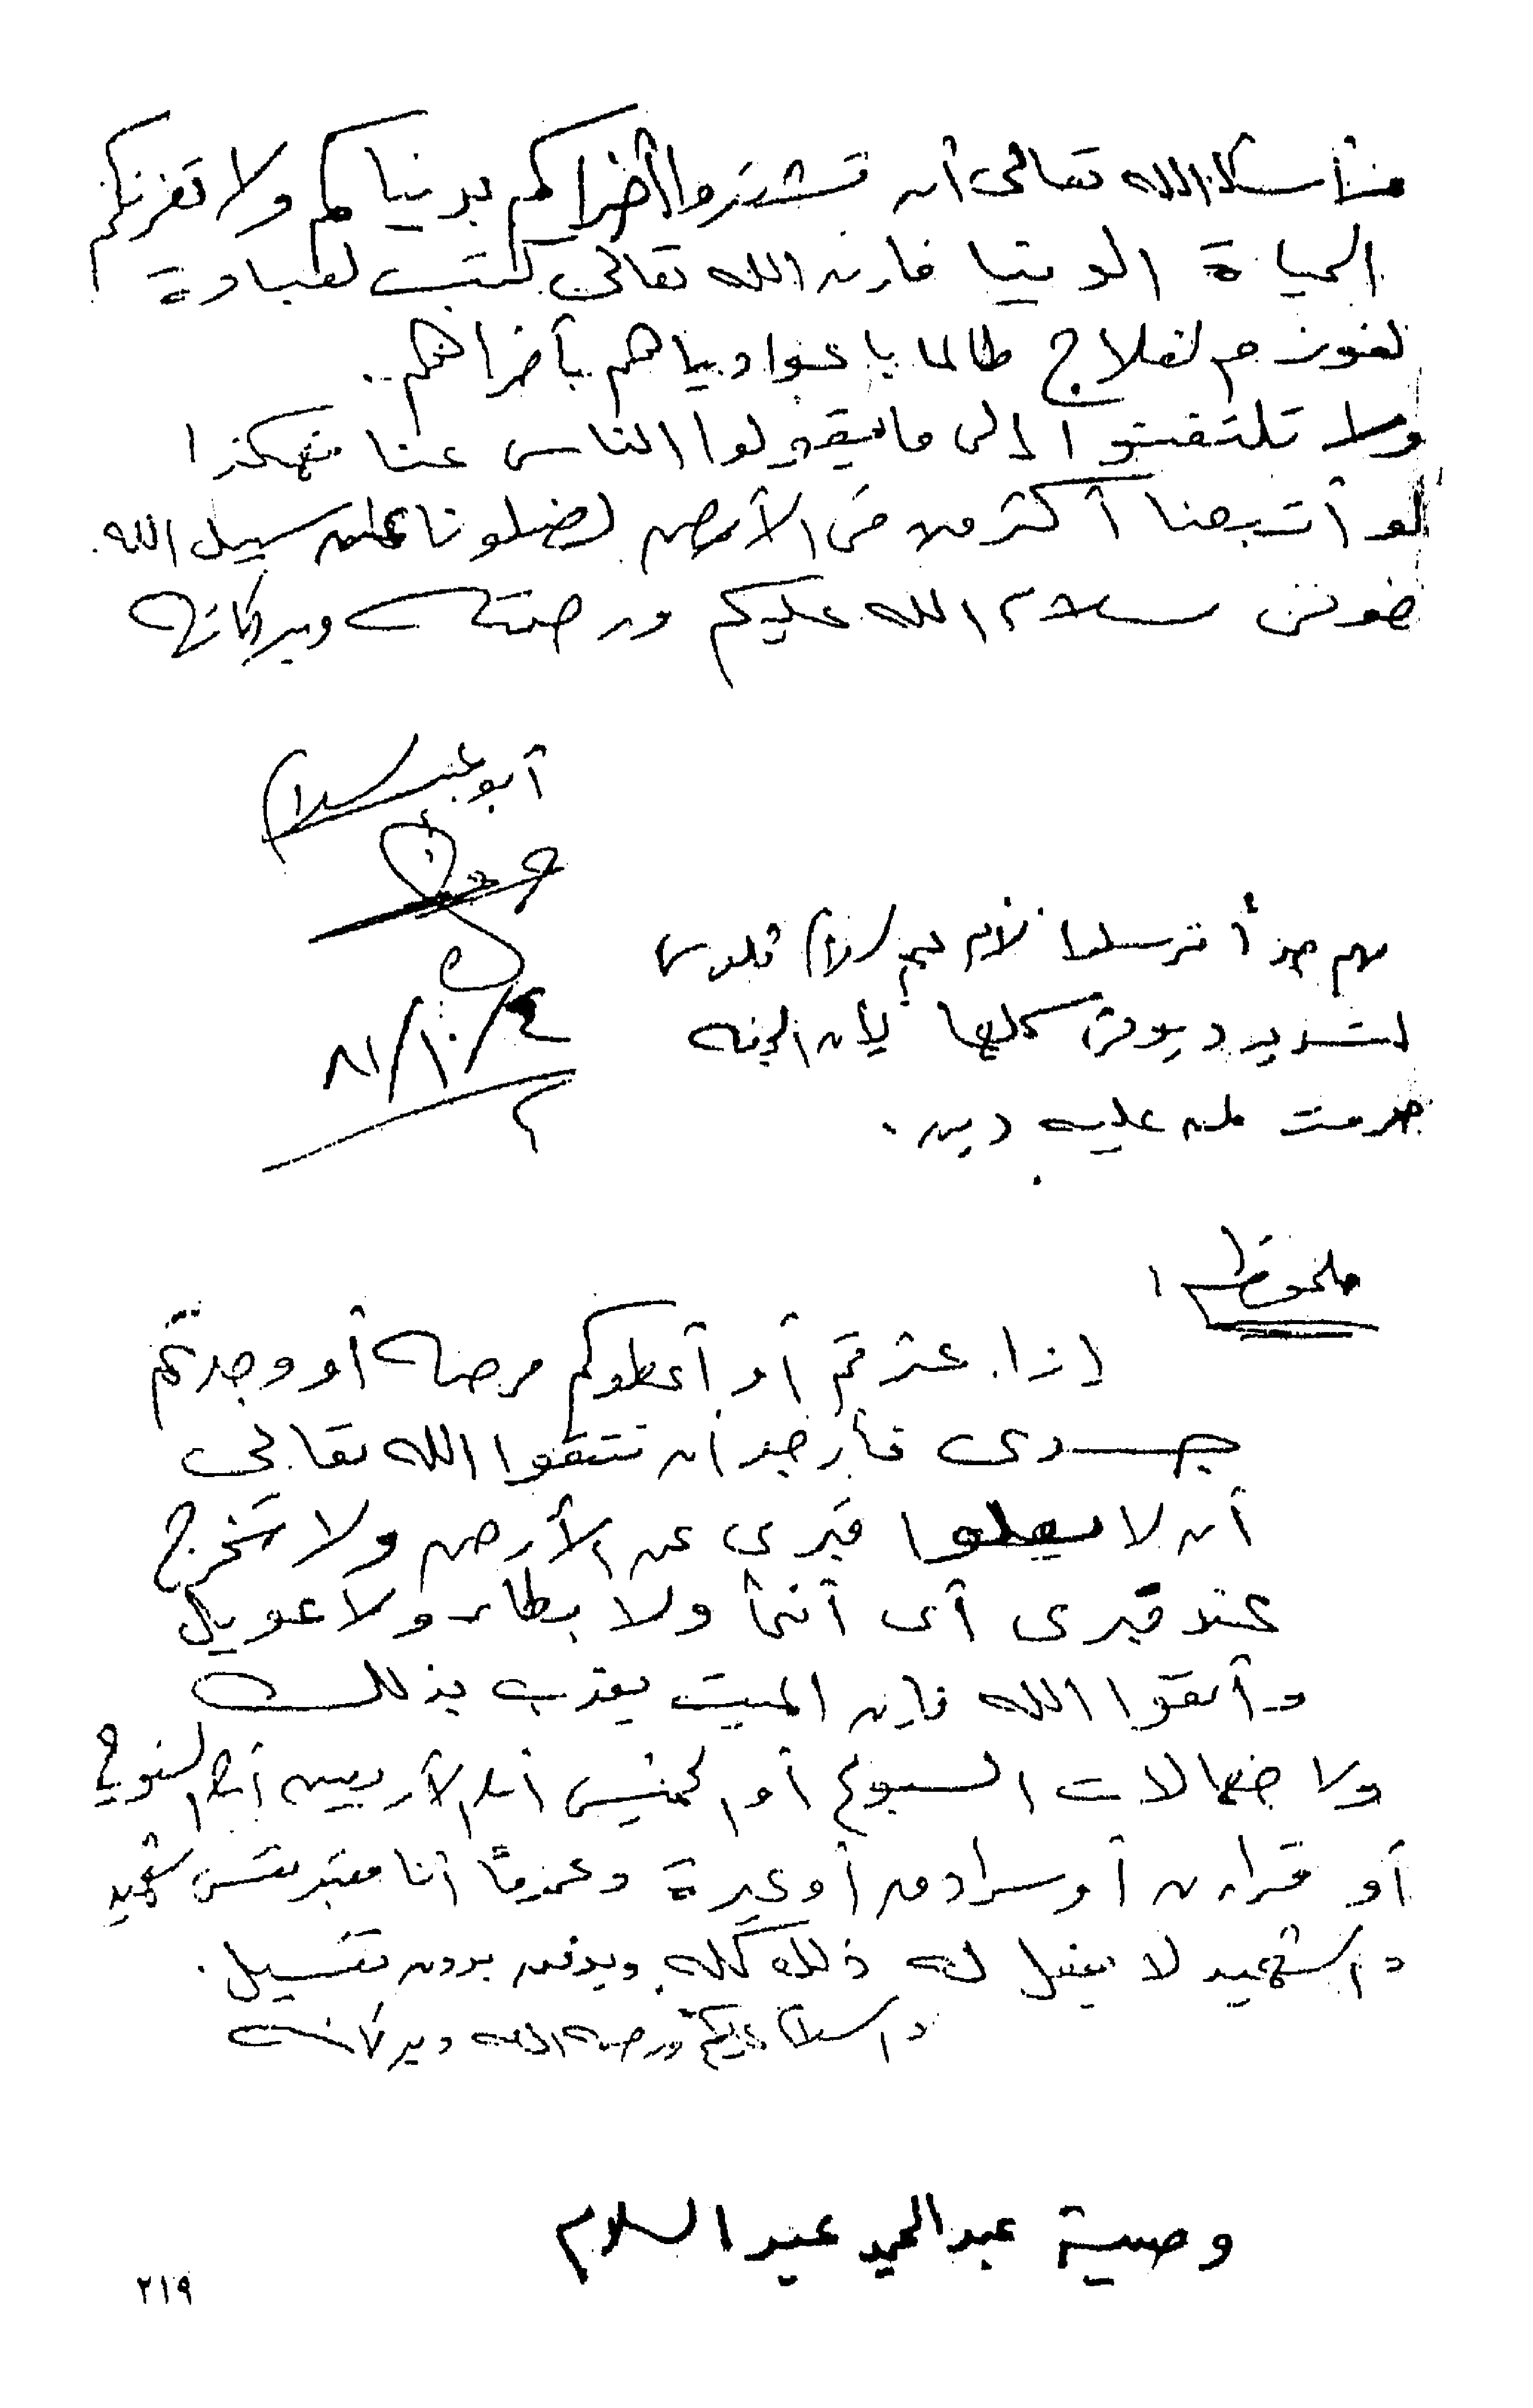 فأسألا الله تعالى أن تشتروا أخراكم بدنياكم ولا تغرنكم
الحياة الدنيا فإن الله تعالى كتب لعباده
الفوز والفلاح طالما باعوا دنياهم بأخراهم.
ولا تلتفتوا إلى ما يقولوا الناس عنا فهكذا
لو أتبعنا أكثر من في الأرض لضلونا عن سبيل الله.
سلام الله عليكم ورحمته وبركاته
أبو عبد السلام
مهم جداً ترسلوا فلوس
لتسديد ديوني كلها لأن الجنة
حرمت لمن عليه دين.
٤/١٠/٨١ م
ملحوظة:
إذا عثرتم أو أعطوكم أو وجدتم
جسدى فأرجو أن تتقوا الله تعالى
أن لا يعلوا قبرى عن الأرض ولا تخرج
عند قبرى أى أنثى ولا بكاء ولا عويل
وأتقوا الله فإن الميت يعذب بذلك
ولا السبوع أو الخميس أو الأربعين أو السنوية
أو قرآن أو سرادق أو غيره وعموماً أنا معتبر نفسى شهيد
والشهيد لا يفعل له ذلك كله ويدفن بدون تغسيل.
والسلام عليكم ورحمة الله وبركاته
وصية عبد الحميد عبد السلام
٢١٩